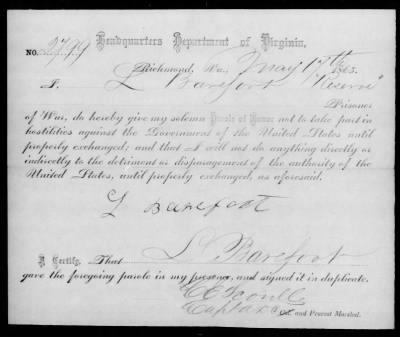 Headquarters Department of Virginia,
NO. 2799
Richmond, Va., May 17th 1865.
I, L Barefoot "Reserve"
Prisoner
of War, do hereby give my solemn Parole of Honor not to take part in
hostilities against the Government of the United States until
properly exchanged; and that I will not do anything directly or
indirectly to the detriment or disparagement of the authority of the
United States, until properly exchanged, as aforesaid.
L Barefoot
I Certify, That L Barefoot
gave the foregoing parole in my presence, and signed it in duplicate.
Capt and
Col. and Provost Marshal.